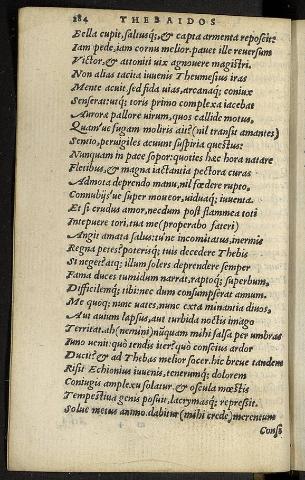 284 THEBAIDOS
Bella cupit, saltusq;, & capta armenta reposcit:
Iam pede, iam cornu melior. pauet ille reuersum
Victor, & attoniti uix agnouere magistri.
Non alias tacita iuuenis Theumesius iras
Mente acuit. sed fida uias, arcanaq; coniux
Senserat: utq; toris primo complexa iacebat
Aurora pallore uirum, quos callide motus,
Quam'ue fugam moliris ait? (nil transit amantes)
Sentio, peruigiles acuunt suspiria questus:
Nunquam in pace sopor: quoties hæc hora natare
Fletibus, & magna latrantia pectora curas
Admota deprendo manu, nil fœdere rupto,
Connubijs'ue super moueor, uiduaq; iuuenta.
Et si crudus amor, necdum post flammea toti
Intepuere tori, tua me (properabo fateri)
Angit amata salus: tu'ne incomitatus, inermis
Regna petes? poterisq; tuis decedere Thebis
Si neget? atq; illum solers deprendere semper
Fama duces tumidum narrat, raptoq; superbum,
Difficilemq; tibi: nec dum consumpserat annum.
Me quoq; nunc uates, nunc exta minantia diuos,
Aut auium lapsus, aut turbida noctis imago
Territat. ah (memini) nũquam mihi falsa per umbras
Iuno uenit: quò tendis iter? quò conscius ardor
Ducit? & ad Thebas melior socer. hic breue tandem
Risit Echionius iuuenis, tenerumq; dolorem
Coniugis amplexu solatur, & oscula mœstis
Tempestiua genis posuit, lacrymasq; repressit.
Solue metus animo. dabitur (mihi crede) merentum
Consi